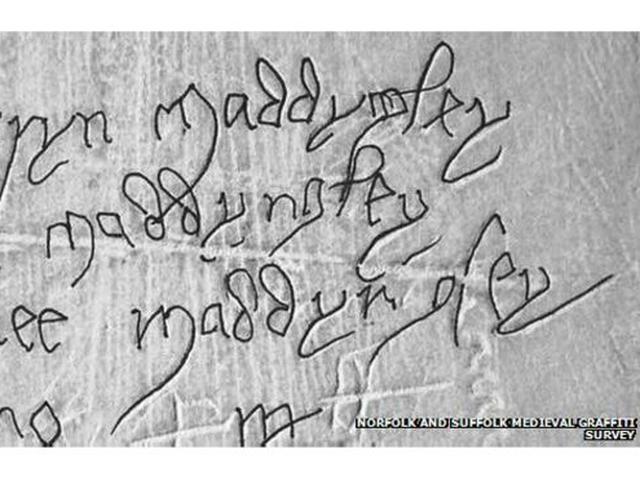 ryn maddyngley
maddyngley
ee maddyngley
no m
NORFOLK AND SUFFOLK MEDIEVAL GRAFFITI
SURVEY